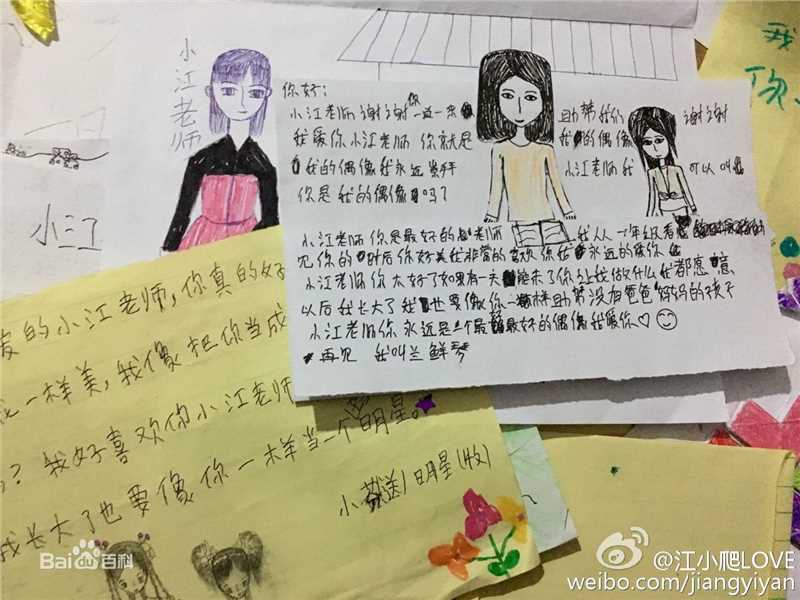 小江老师
你好：
小江老师谢谢你一直一来 助帮我们 谢谢
我爱你小江老师 你就是 我的偶像
我的偶像我永远崇拜 小江老师我 可以叫
你是我的偶像吗？
小江老师你是最好的老师 我从一年级看
见你的时后你好美我非常的喜欢你我永远的爱你
小江老师你太好了如果有一天能来了你让我做什么我都愿意
以后我长大了我也要像你一样助帮没有爸爸妈妈的孩子
小江老师你永远是三个最最好的偶像我爱你♡
再见 我叫兰鲜琴
小三了
爱的小江老师，你真的好
花一样美，我像把你当成
？我好喜欢你小江老师
我长大了也要像你一样当一个明星。
小 送 明星(收)
Baidu百科
@江小爬LOVE
weibo.com/jiangyiyan